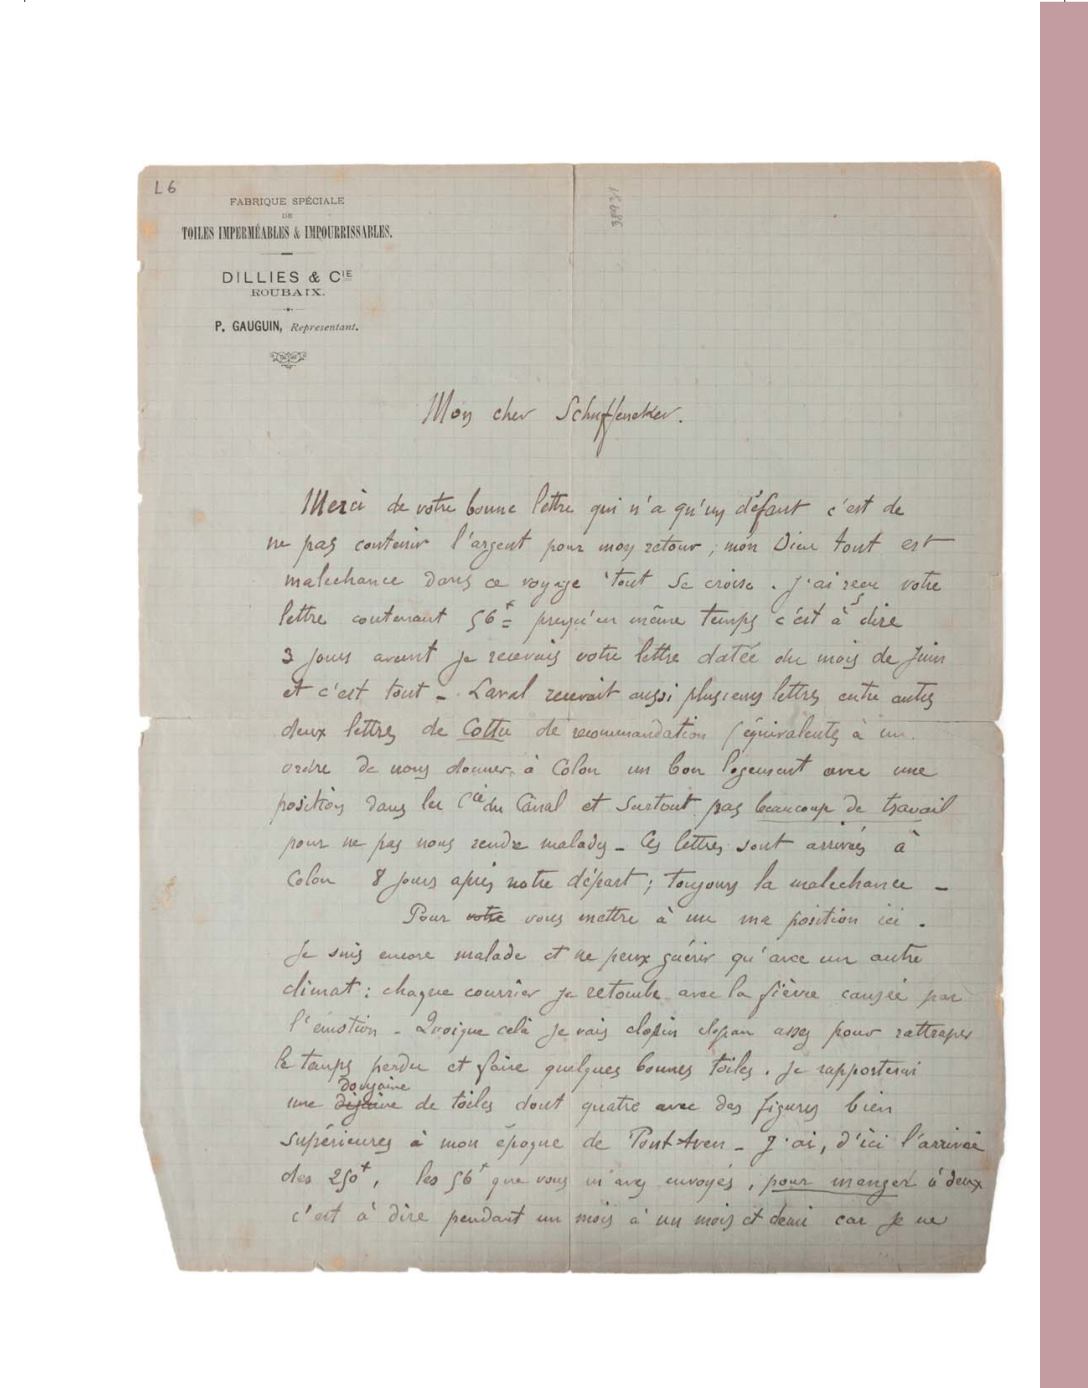 L6
38931
FABRIQUE SPÉCIALE
DE
TOILES IMPERMÉABLES & IMPOURRISSABLES.
DILLIES & CIE
ROUBAIX.
P. GAUGUIN, Representant.
Mon cher Schuffenecker.
Merci de votre bonne lettre qui n'a qu'un défaut c'est de
ne pas contenir l'argent pour mon retour ; mon Dieu tout est
malechance dans ce voyage tout se croise . J'ai reçu votre
lettre contenant 56f presqu'en même temps c'est à dire
3 jours avant je recevais votre lettre datée du mois de Juin
et c'est tout - Laval recevait aussi plusieurs lettres entre autres
deux lettres de Cottu de recommandation (équivalentes à un
ordre de nous donner à Colon un bon logement avec une
position dans les Cie du Canal et surtout pas beaucoup de travail
pour ne pas nous rendre malades - Ces lettres sont arrivées à
Colon 8 jours après notre départ ; toujours la malechance -
Pour votre vous mettre à nu ma position ici .
Je suis encore malade et ne peux guérir qu'avec un autre
climat : chaque courrier je retombe avec la fièvre causée par
l'émotion - Quoique celà je vais clopin clopan assez pour rattraper
le temps perdu et faire quelques bonnes toiles . Je rapporterai
douzaine
une dizaine de toiles dont quatre avec des figures bien
supérieures à mon époque de Pont-Aven - J'ai, d'ici l'arrivée
des 250f, les 56f que vous m'avez envoyés , pour manger à deux
c'est à dire pendant un mois à un mois et demi car je ne